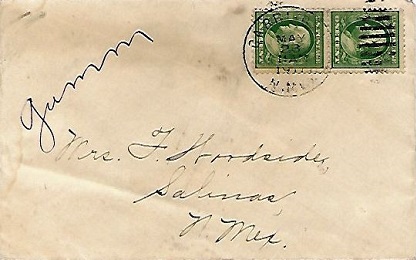 MAY
N. MEX.
gumm
Mrs. F. Woodside,
Salinas,
N. Mex.